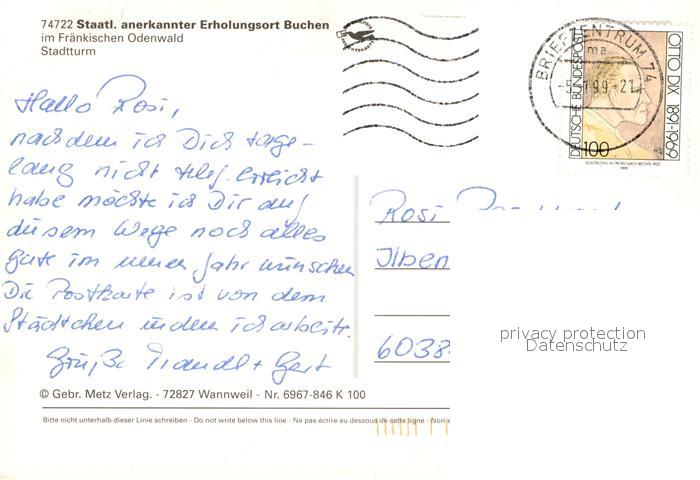 74722 Staatl. anerkannter Erholungsort Buchen
im Fränkischen Odenwald
Stadtturm
BRIEFZENTRUM 74
ma
-5.-1.99-21
OTTO DIX 1891-1969
DEUTSCHE BUNDESPOST
100
Hallo Rosi,
nachdem ich Dich tage-
lang nicht telef. erreicht
habe möchte ich Dir auf
diesem Wege noch alles
Gute im neuen Jahr wünschen
Die Postkarte ist von dem
Städtchen indem ich arbeite.
Grüße Traudl + Gert
Rosi
Ilben
6038
privacy protection
Datenschutz
© Gebr. Metz Verlag. - 72827 Wannweil - Nr. 6967-846 K 100
Bitte nicht unterhalb dieser Linie schreiben - Do not write below this line - Ne pas écrire au dessous de cette ligne - Non a